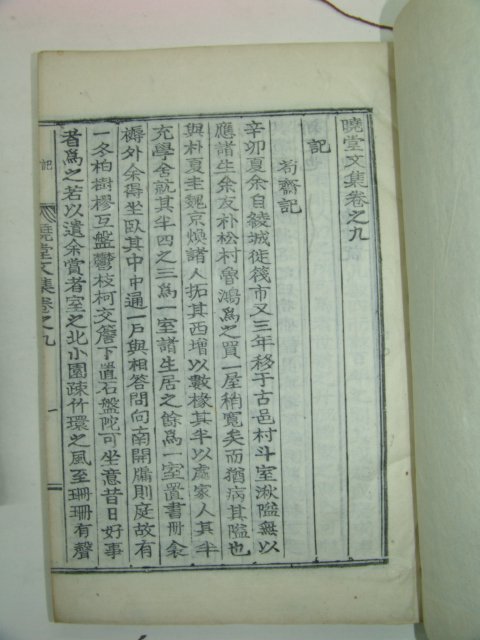 曉堂文集卷之九
記
苟齋記
辛卯夏余自綾城徙筏市又三年移于古邑村斗室湫隘無以
應諸生余友朴松村魯鴻爲之買一屋稍寬矣而猶病其隘也
與朴夏圭魏京煥諸人拓其西增以數椽其半以處家人其半
充學舍就其半四之三爲一室諸生居之餘爲一室置書冊余
褥外余得坐臥其中中通一戶與相答問向南開牖則庭故有
一冬柏樹樛互盤鬱枝柯交簷下置石盤陀可坐意昔日好事
者爲之若以遺余賞者室之北小園疎竹環之風至珊珊有聲
記
曉堂文集卷之九
一